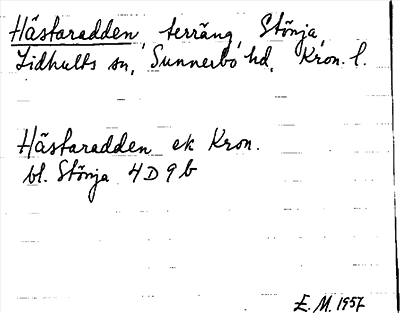 Hästaradden, terräng, Stönja,
Lidhults sn, Sunnerbo hd, Kron. l.
Hästaradden ek Kron.
bl. Stönja 4D9b
E. M. 1957